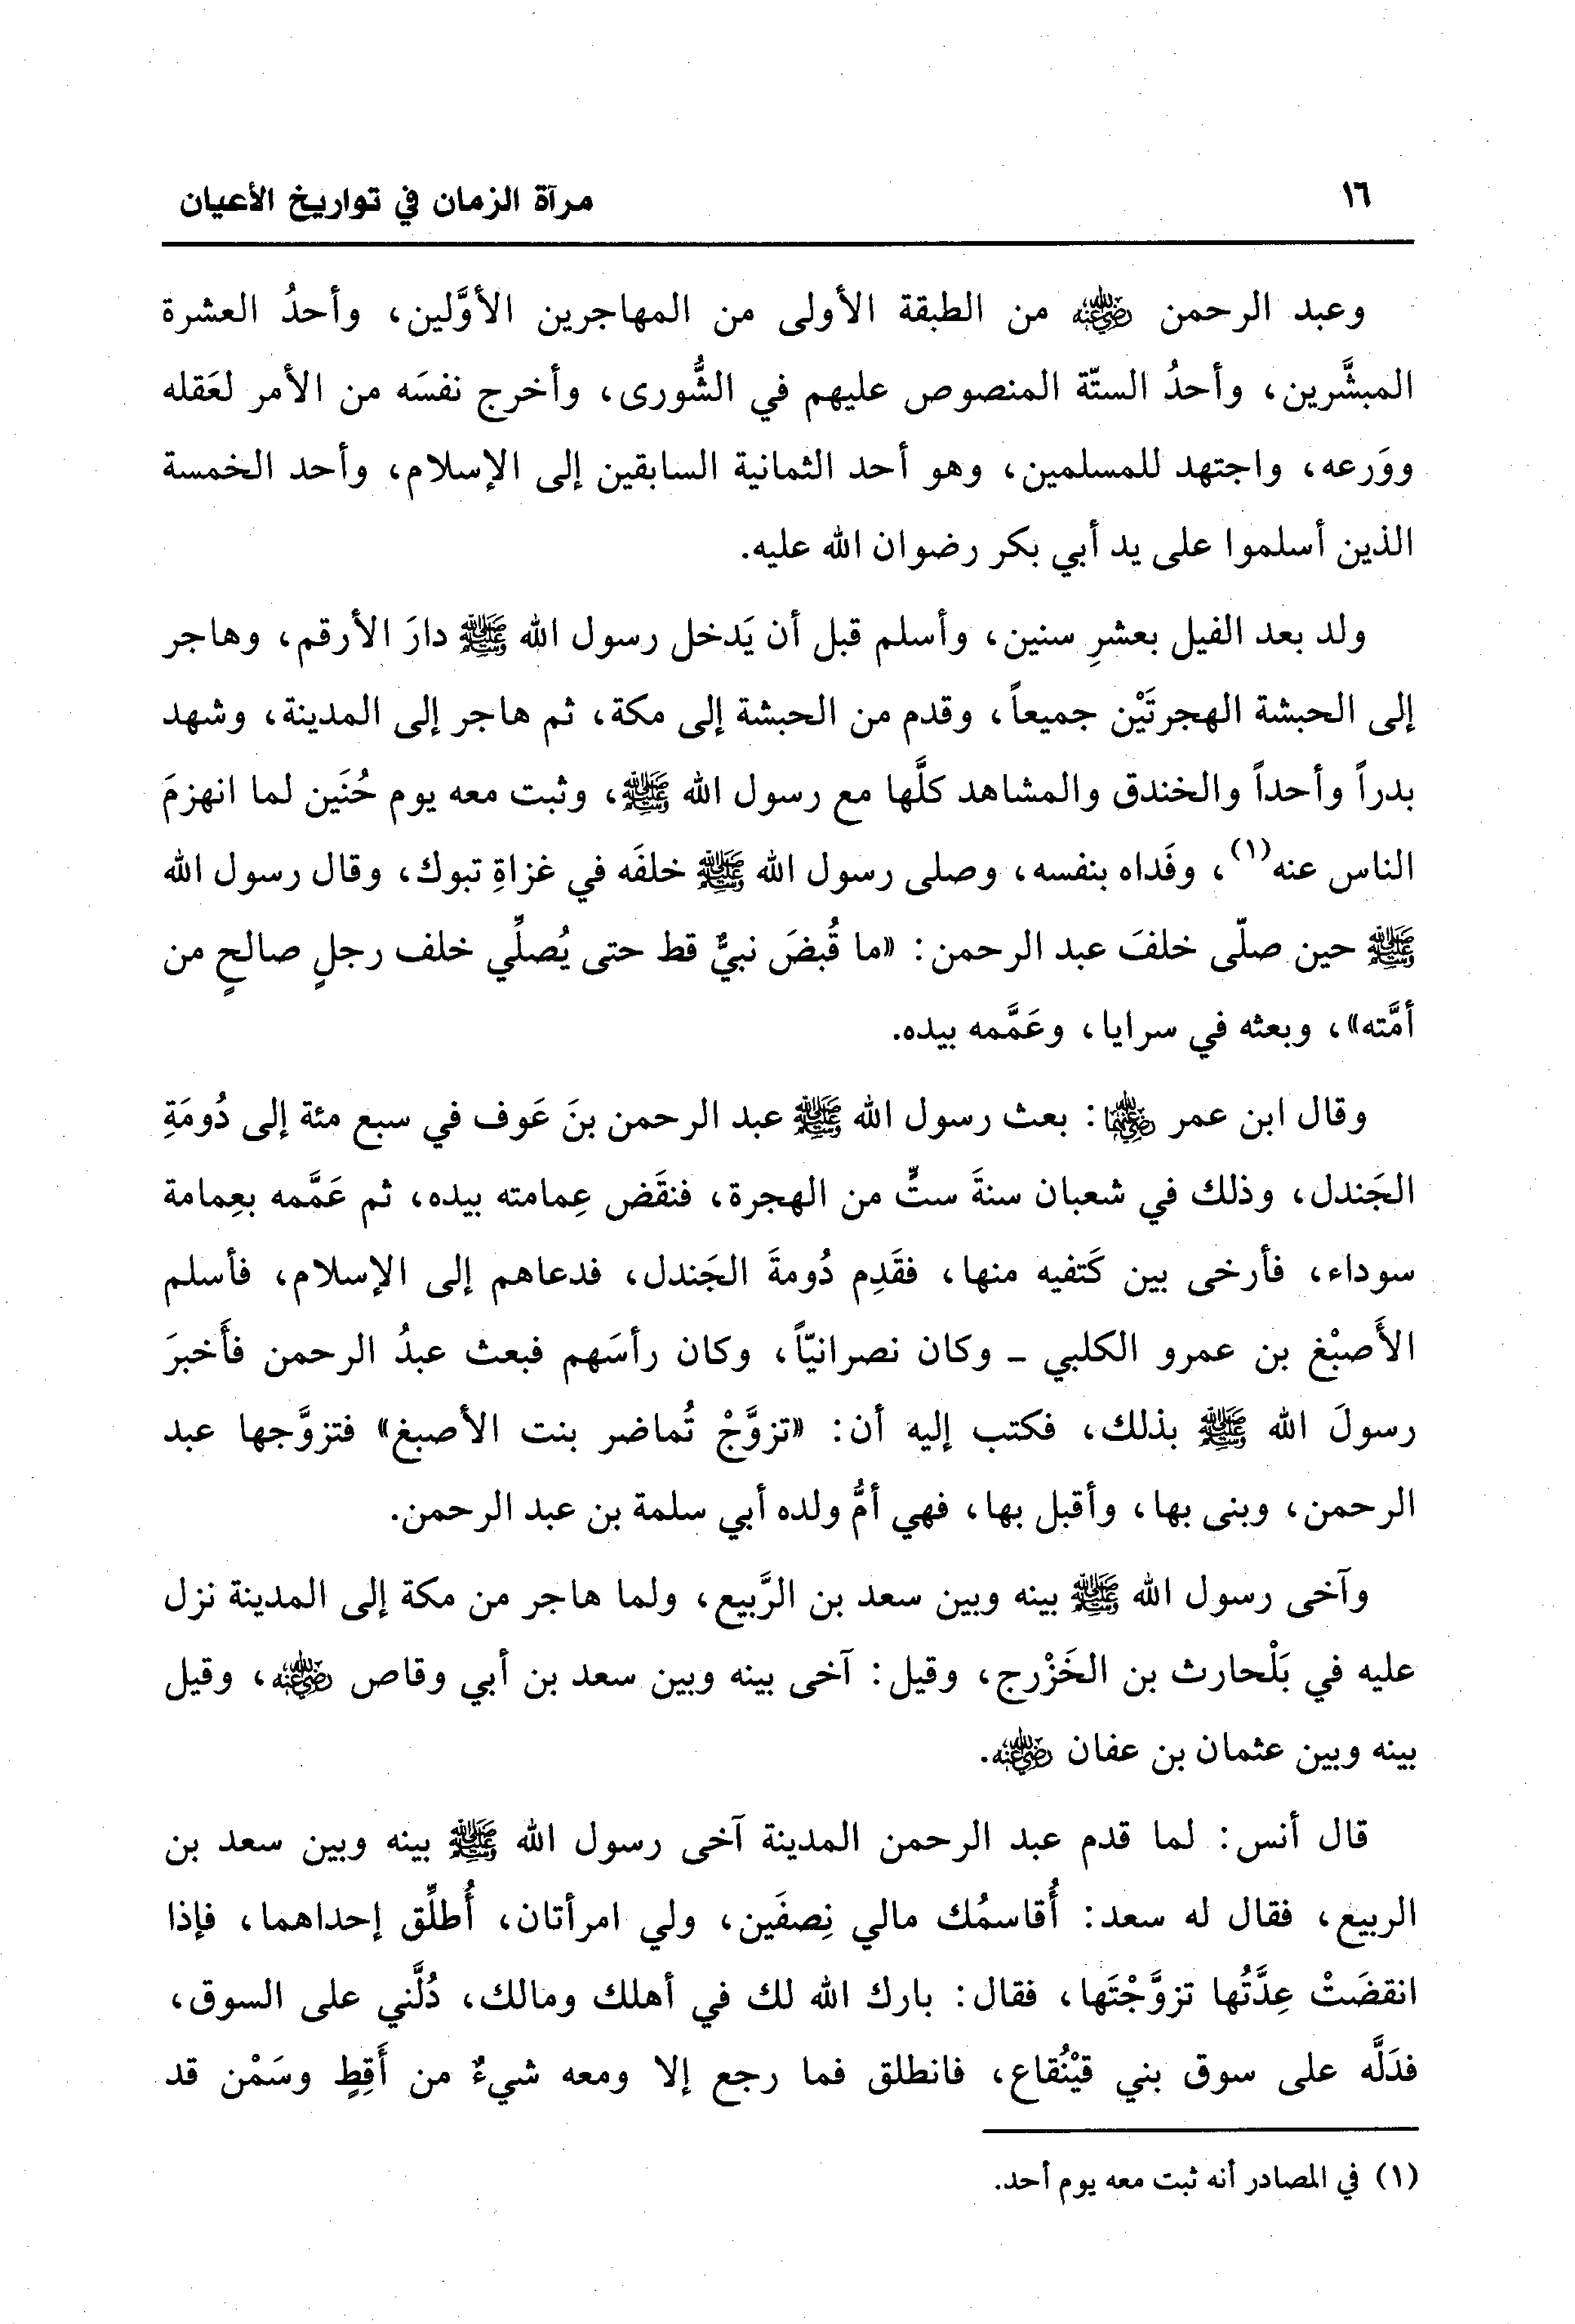 ١٦
مرآة الزمان في تواريخ الأعيان
وعبد الرحمن رضي الله عنه من الطبقة الأولى من المهاجرين الأوَّلين، وأحدُ العشرة
المبشَّرين، وأحدُ الستّة المنصوص عليهم في الشُّورى، وأخرج نفسَه من الأمر لعَقله
ووَرعه، واجتهد للمسلمين، وهو أحد الثمانية السابقين إلى الإسلام، وأحد الخمسة
الذين أسلموا على يد أبي بكر رضوان الله عليه.
ولد بعد الفيل بعشرِ سنين، وأسلم قبل أن يَدخل رسول الله ﷺ دارَ الأرقم، وهاجر
إلى الحبشة الهجرتَيْن جميعاً، وقدم من الحبشة إلى مكة، ثم هاجر إلى المدينة، وشهد
بدراً وأحداً والخندق والمشاهد كلَّها مع رسول الله ﷺ، وثبت معه يوم حُنَين لما انهزمَ
الناس عنه(١)، وفَداه بنفسه، وصلى رسول الله ﷺ خلفَه في غزاةِ تبوك، وقال رسول الله
ﷺ حين صلّى خلفَ عبد الرحمن: «ما قُبضَ نبيٌّ قط حتى يُصلِّي خلف رجلٍ صالحٍ من
أمَّته»، وبعثه في سرايا، وعَمَّمه بيده.
وقال ابن عمر رضي الله عنهما: بعث رسول الله ﷺ عبد الرحمن بنَ عَوف في سبع مئة إلى دُومَةِ
الجَندل، وذلك في شعبان سنةَ ستٍّ من الهجرة، فنقَض عِمامته بيده، ثم عَمَّمه بعِمامة
سوداء، فأرخى بين كَتفيه منها، فقَدِم دُومةَ الجَندل، فدعاهم إلى الإسلام، فأسلم
الأَصبْغ بن عمرو الكلبي - وكان نصرانيّاً، وكان رأسَهم فبعث عبدُ الرحمن فأَخبرَ
رسولَ الله ﷺ بذلك، فكتب إليه أن: «تزوَّجْ تُماضر بنت الأصبغ» فتزوَّجها عبد
الرحمن، وبنى بها، وأقبل بها، فهي أمُّ ولده أبي سلمة بن عبد الرحمن.
وآخى رسول الله ﷺ بينه وبين سعد بن الرَّبيع، ولما هاجر من مكة إلى المدينة نزل
عليه في بَلْحارث بن الخَزْرج، وقيل: آخى بينه وبين سعد بن أبي وقاص رضي الله عنه، وقيل
بينه وبين عثمان بن عفان رضي الله عنه.
قال أنس: لما قدم عبد الرحمن المدينة آخى رسول الله ﷺ بينه وبين سعد بن
الربيع، فقال له سعد: أُقاسمُك مالي نِصفَين، ولي امرأتان، أُطلِّق إحداهما، فإذا
انقضَتْ عِدَّتُها تزوَّجْتَها، فقال: بارك الله لك في أهلك ومالك، دُلَّني على السوق،
فدَلَّه على سوق بني قيْنُقاع، فانطلق فما رجع إلا ومعه شيءٌ من أَقِطٍ وسَمْن قد
(١) في المصادر أنه ثبت معه يوم أحد.